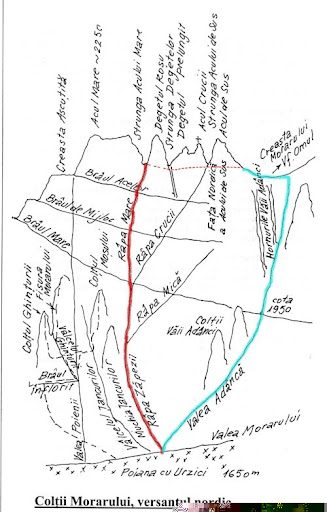 Creasta Ascuțită
Acul Mare ~2250
Strunga Acului Mare
Degetul Roșu
Strunga Degetelor
Degetul Prelungit
Acul Crucii
Strunga Acului de Sus
Acul de Sus
Creasta
Morarului
Vf. Omul
Brâul Acelor
Brâul de Mijloc
Brâul Mare
Râpa Mare
Râpa Crucii
Fața Nordică
a Acului de Sus
Hornurile Văii Adânci
Colțul Ghințurii
Fisura
Morarului
Colțul
Moșului
Râpa Mică
Colții
Văii Adânci
cota
1950
Brâul
Înflorit
Valea Poienii
Vâlcelul Țancurilor
Muchia Țancurilor
Râpa Zăpezii
Valea Adâncă
Valea Morarului
Poiana cu Urzici 1650m
Colții Morarului, versantul nordic